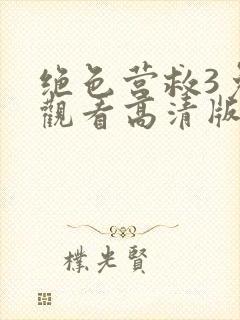 绝色营救3
觀看高清版
樸光賢